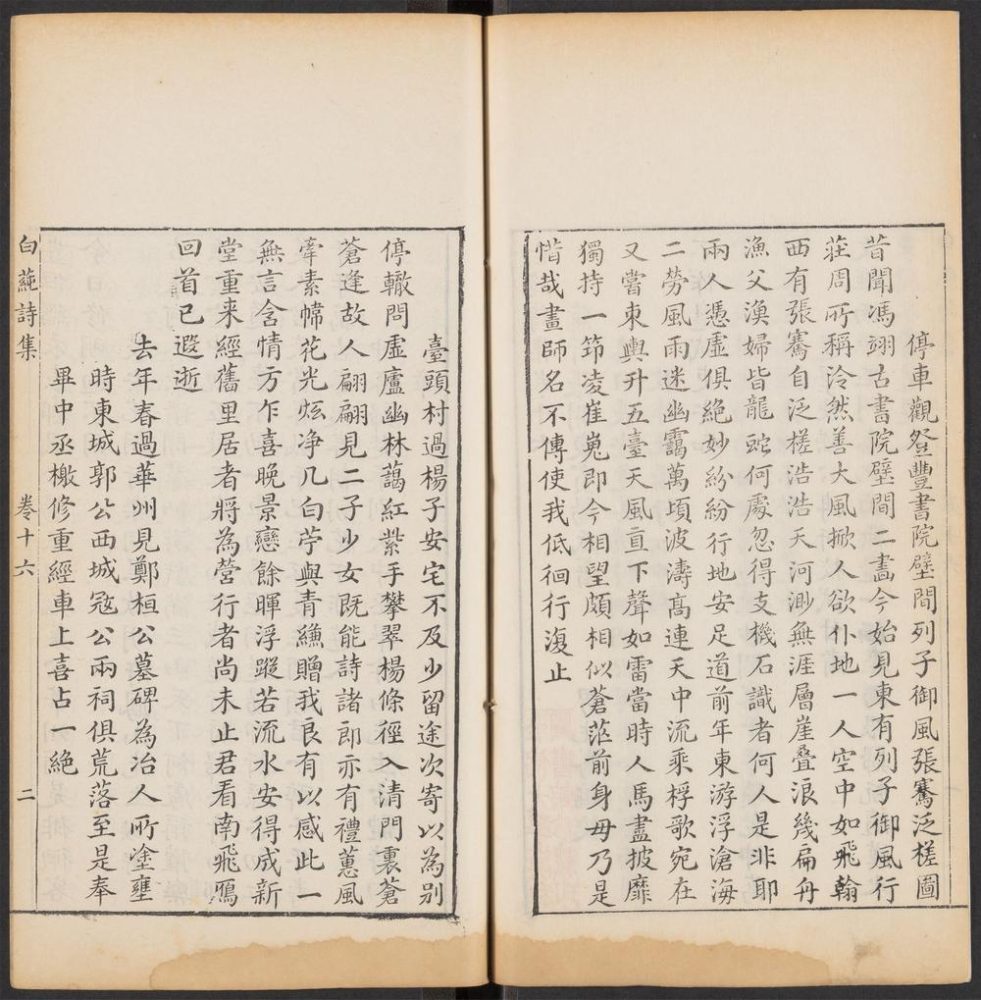 停車觀登豐書院壁間列子御風張騫泛槎圖
昔聞馮翊古書院壁間二畵今始見東有列子御風行
莊周所稱泠然善大風掀人欲仆地一人空中如飛翰
西有張騫自泛槎浩浩天河渺無涯層崖叠浪幾扁舟
漁父漁婦皆龍䖤何處忽得支機石識者何人是非耶
兩人憑虛俱絶妙紛紛行地安足道前年東游浮滄海
二勞風雨迷幽靄萬頃波濤高連天中流乘桴歌宛在
又嘗東輿升五臺天風亘下聲如雷當時人馬盡披靡
獨持一笻凌崔嵬即今相望頗相似蒼茫前身毋乃是
惜哉畫師名不傳使我低徊行復止
臺頭村過楊子安宅不及少留途次寄以為別
停轍問虛廬幽林藹紅紫手攀翠楊條徑入清門裏蒼
蒼逢故人翩翩見二子少女既能詩諸郎亦有禮蕙風
牽素幃花光炫净几白苧與青縑贈我良有以感此一
無言含情方乍喜晚景戀餘暉浮蹤若流水安得成新
堂重来經舊里居者將為營行者尚未止君看南飛鴈
回首已遐逝
去年春過華州見鄭桓公墓碑為冶人所塗壅
時東城郭公西城宼公兩祠俱荒落至是奉
畢中丞檄修重經車上喜占一絶
白蒓詩集
卷十六
二